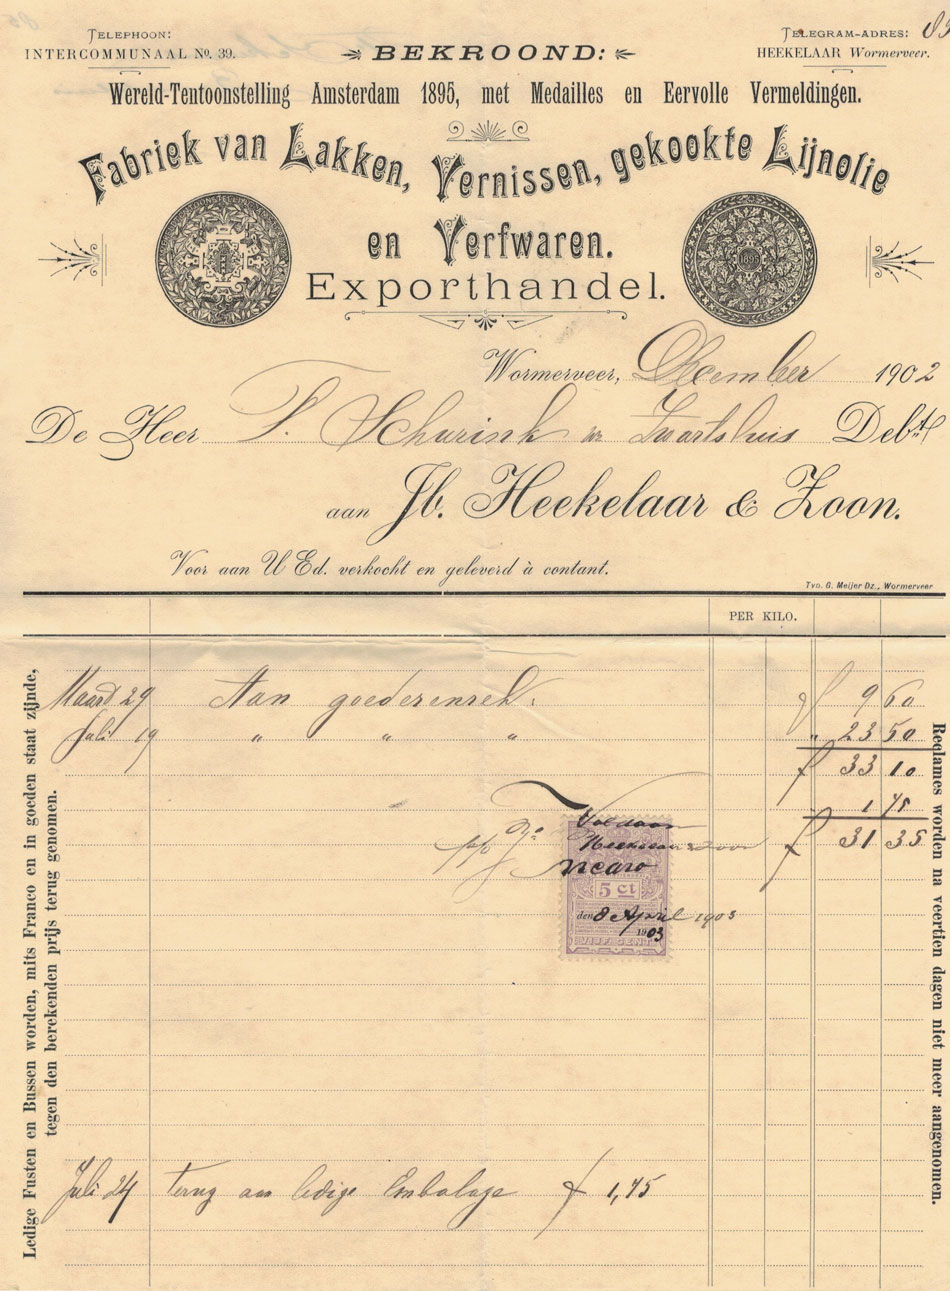 TELEPHOON:
INTERCOMMUNAAL No. 39.
BEKROOND:
TELEGRAM-ADRES:
HEEKELAAR Wormerveer.
Wereld-Tentoonstelling Amsterdam 1895, met Medailles en Eervolle Vermeldingen.
Fabriek van Lakken, Vernissen, gekookte Lijnolie
en Verfwaren.
Exporthandel.
1895
Wormerveer, December 1902
De Heer F. Schurink Zwartsluis Debt.
aan Jb. Heekelaar & Zoon.
Voor aan U Ed. verkocht en geleverd à contant.
Typ. G. Meijer Dz., Wormerveer
PER KILO.
Maart 29 Aan goederenrek. f 9 60
Juli 19 " " " " 23 50
f 33 10
1 75
f 31 35
Voldaan
p/o Jb. Heekelaar & Zoon
5 ct
den 8 April 1903
1903
VIJF CENT
Juli 24 terug aan ledige Embalage f 1,75
Ledige Fusten en Bussen worden, mits Franco en in goeden staat zijnde,
tegen den berekenden prijs terug genomen.
Reclames worden na veertien dagen niet meer aangenomen.